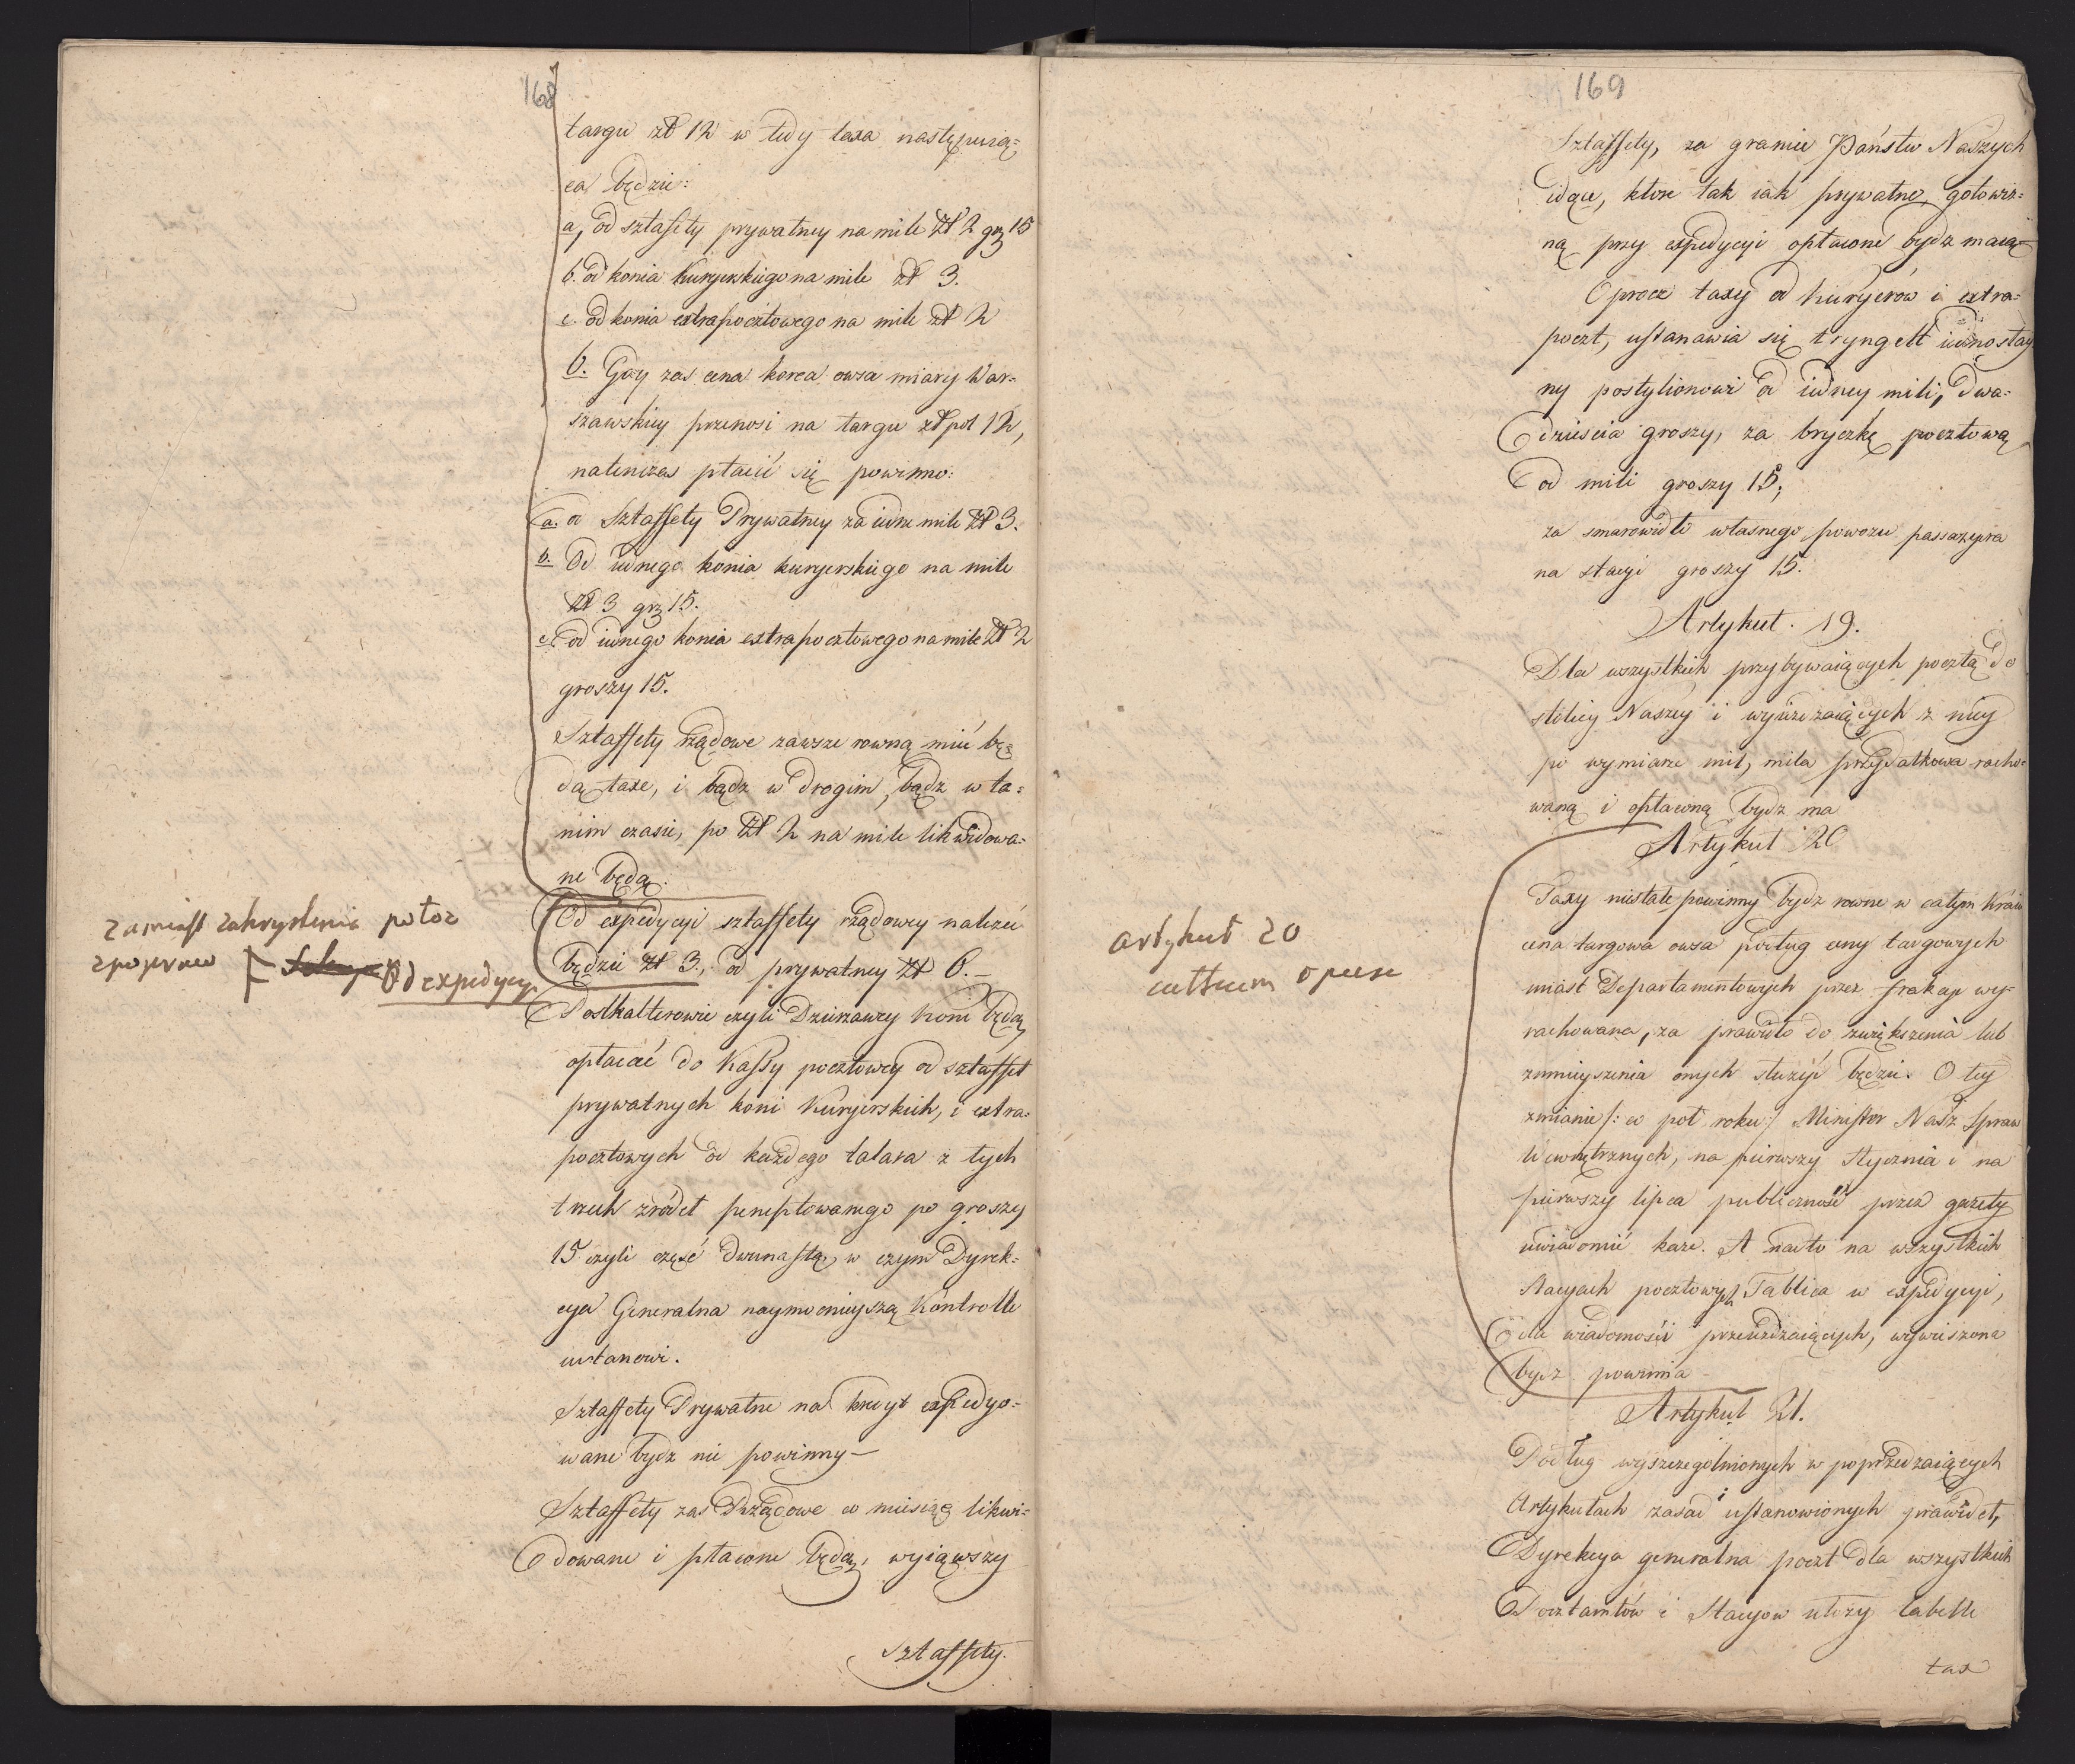 168
targu zł 12 w tedy taxa następuią=
ca będzie:
a, od sztafety prywatney na mile zł 2 grz 15
b. od konia Kuryerskiego na mile zł 3.
c. od konia extrapocztowego na mile zł 2
b. Gdy zas cena korca owsa miary War=
szawskiey przenosi na targu zł pol 12,
natenczas płacić się powinno:
a. od Sztaffety Prywatney za iedne mile zł 3.
b. Od iednego konia kuryerskiego na mile
zł 3 grz 15.
c. od iednego konia extrapocztowego na mile zł 2
groszy 15.
Sztaffety rządowe zawsze rowną mieć bę=
dą taxe, i bądz w drogim, bądz w ta=
nim czasie, po zł 2 na mile likwidowa=
ne będą.
Od expedycyi sztaffety rządowey należeć
będzie zł 3., od prywatney zł 6.—
Posthalterowie czyli Dzierzawcy koni będą
opłacać do Kassy pocztowey od sztaffet
prywatnych koni Kuryerskich, i extra=
pocztowych od każdego talara z tych
trzech zródeł percypowanego po groszy
15 czyli część dwunastą, w czym Dyrek=
cya Generalna naymocnieyszą Kontrolle
ustanowi.
Sztaffety Prywatne na kredyt expedyo=
wane bydz nie powinny—
Sztaffety zas Rządowe co miesiąc likwi=
dowane i płacone będą, wyiąwszy
Sztaffety.
zamiast zakryslenia połoz
Od expedycyi
169
Sztaffety, za granice Państw Naszych
idące, ktore tak iak prywatne, gotowiz=
ną przy expedycyi opłacone bydz maią—
Oprocz taxy od kuryerów i extra=
poczt, ustanawia się tryngelt iednostay
ny postylionowi od iedney mili, dwa=
dziescia groszy, za bryczkę pocztową
od mili groszy 15,
za smarowidło własnego powozu passazyera
na stacyi groszy 15.
Artykuł. 19.
Dla wszystkich przybywaiących pocztą do
stolicy Naszey i wyieżdzaiących z niey
po wymiarze mil, mila przydatkowa racho=
waną i opłaconą bydz ma
Artykuł 20
Taxy niestałe powinny bydz rowne w całym Kraiu
cena targowa owsa podług ceny targowych
miast Departamentowych przez frakcye wy=
rachowana, za prawidło do zwiększenia lub
zmnieyszenia onych służyć będzie. O tey
zmianie /: co poł roku :/ Minister Nasz Spraw
Wewnętrznych, na pierwszy Stycznia i na
pierwszy lipca publiczność przez gazety
uwiadomić każe. A nadto na wszystkich
Stacyach pocztowych Tablica w expedycyi,
dla wiadomości przeieżdzaiących, wywieszona
bydz powinna—
Artykuł 21.
Podług wyszczegolnionych w poprzedzaiących
Artykułach zasad i ustanowionych prawideł,
Dyrekcya generalna poczt dla wszystkich
Pocztamtów i Stacyow ułoży tabelle
tax
artykuł 20